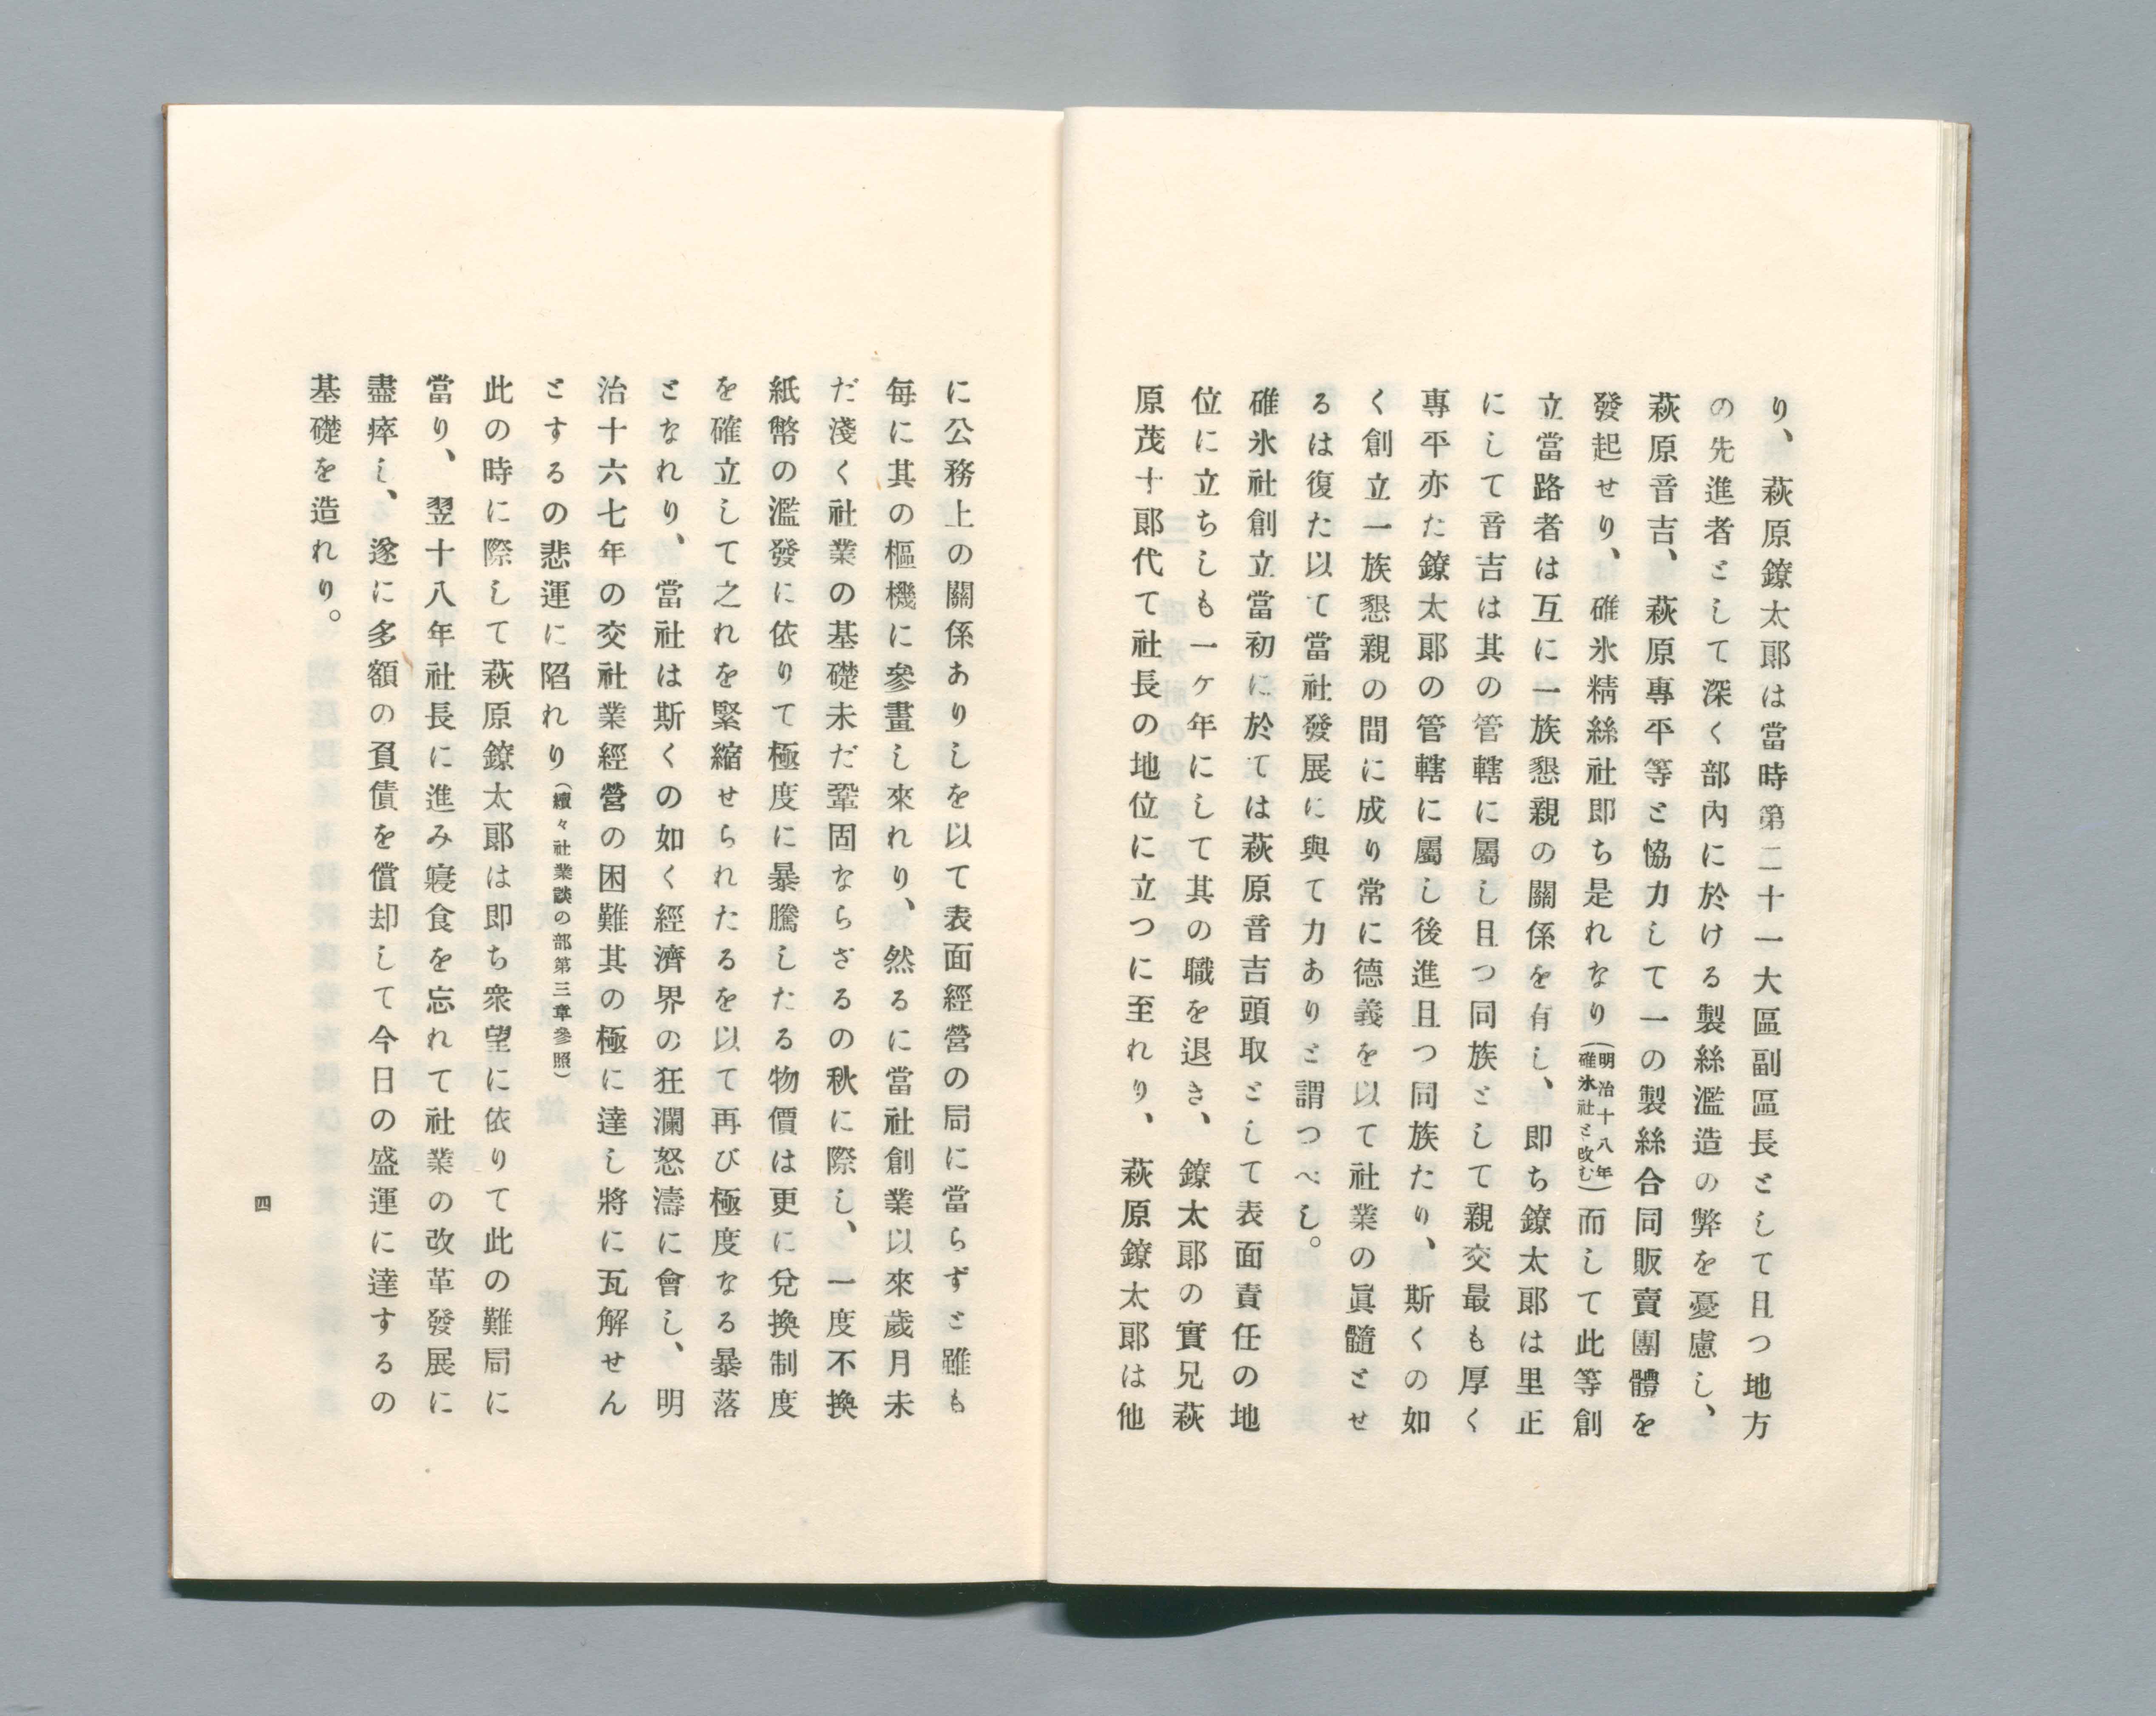 り、萩原鐐太郎は當時第二十一大區副區長として且つ地方
の先進者として深く部內に於ける製絲濫造の弊を憂慮し、
萩原音吉、萩原專平等と協力して一の製絲合同販賣團體を
發起せり、碓氷精絲社即ち是れなり(明治十八年碓氷社と改む)而して此等創
立當路者は互に一族懇親の關係を有し、即ち鐐太郎は里正
にして音吉は其の管轄に屬し且つ同族として親交最も厚く
專平亦た鐐太郎の管轄に屬し後進且つ同族たり、斯くの如
く創立一族懇親の間に成り常に德義を以て社業の眞髓とせ
るは復た以て當社發展に與て力ありと謂つべし。
碓氷社創立當初に於ては萩原音吉頭取として表面責任の地
位に立ちしも一ヶ年にして其の職を退き、鐐太郎の實兄萩
原茂十郎代て社長の地位に立つに至れり、萩原鐐太郎は他
に公務上の關係ありしを以て表面經營の局に當らずと雖も
每に其の樞機に參畫し來れり、然るに當社創業以來歲月未
だ淺く社業の基礎未だ鞏固ならざるの秋に際し、一度不換
紙幣の濫發に依りて極度に暴騰したる物價は更に兌換制度
を確立して之れを緊縮せられたるを以て再び極度なる暴落
となれり、當社は斯くの如く經濟界の狂瀾怒濤に會し、明
治十六七年の交社業經營の困難其の極に達し將に瓦解せん
とするの悲運に陷れり(續々社業談の部第三章參照)
此の時に際して萩原鐐太郎は即ち衆望に依りて此の難局に
當り、翌十八年社長に進み寢食を忘れて社業の改革發展に
盡瘁し、遂に多額の負債を償却して今日の盛運に達するの
基礎を造れり。
四